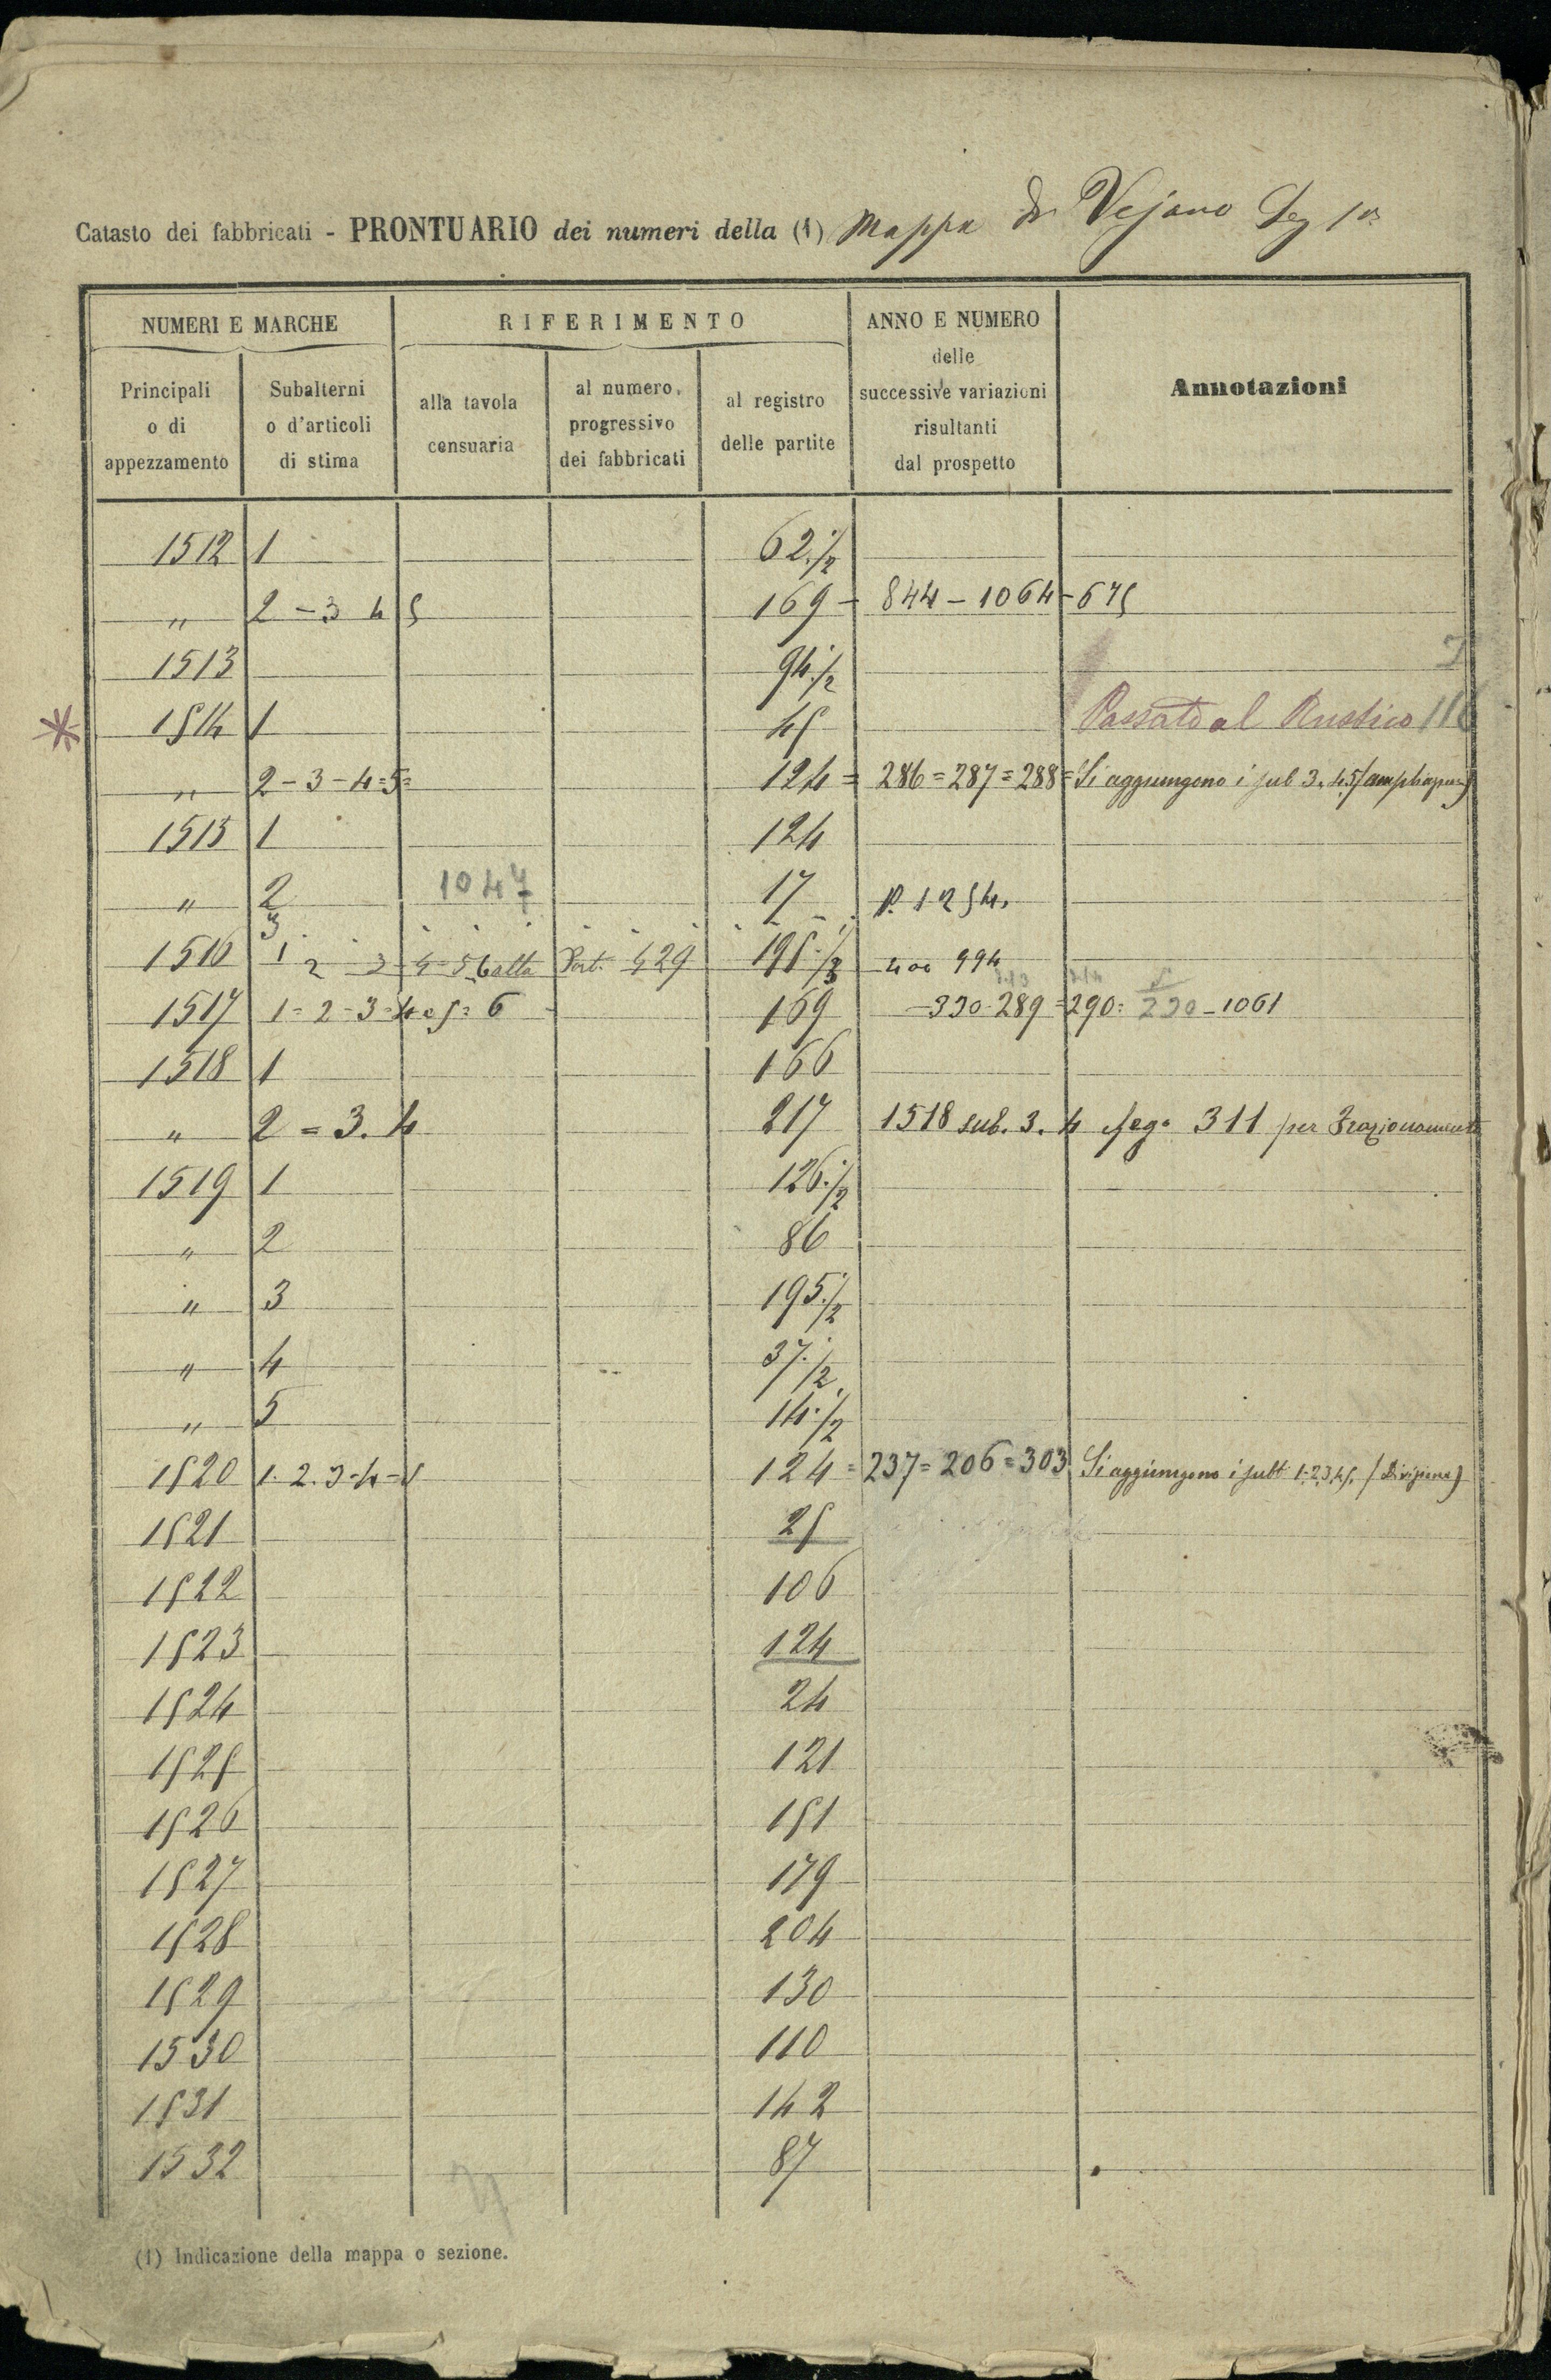 Catasto dei fabbricati - PRONTUARIO dei numeri della (1) Mappa di Vejano Sez 1a
NUMERI E MARCHE
RIFERIMENTO
ANNO E NUMERO
delle
successive variazioni
risultanti
dal prospetto
Annotazioni
Principali
o di
appezzamento
Subalterni
o d'articoli
di stima
alla tavola
censuaria
al numero
progressivo
dei fabbricati
al registro
delle partite
1512 1 62 ½
" 2 - 3 4 5 169 - 844 - 1064 - 675
1513 94 ½
1514 1 45 Passato al Rustico
" 2 - 3 - 4 = 5 = 124 = 286 = 287 = 288 = Si aggiungono i sub 3. 4.5
1515 1 124
" 2 1047 17 P. 1254.
3
1516 1 2 3 4 = 5 6 Part. 429 195 994
1517 1 = 2 - 3 = 4 = 5 = 6 169 - 330 - 289 = 290 = 230 - 1061
1518 1 166
" 2 = 3. 4 217 1518 sub. 3. 4 311 per Frazionamento
1519 1 126 ½
" 2 86
" 3 195 ½
" 4 37 ½
" 5 14 ½
1520 1. 2. 3 = 4 = 5 124 = 237 = 206 = 303 Si aggiungono i subt 1.2.3.4.5. (Divisione)
1521 25
1522 106
1523 124
1524 24
1525 121
1526 151
1527 179
1528 204
1529 130
1530 110
1531 142
1532 87
(1) Indicazione della mappa o sezione.